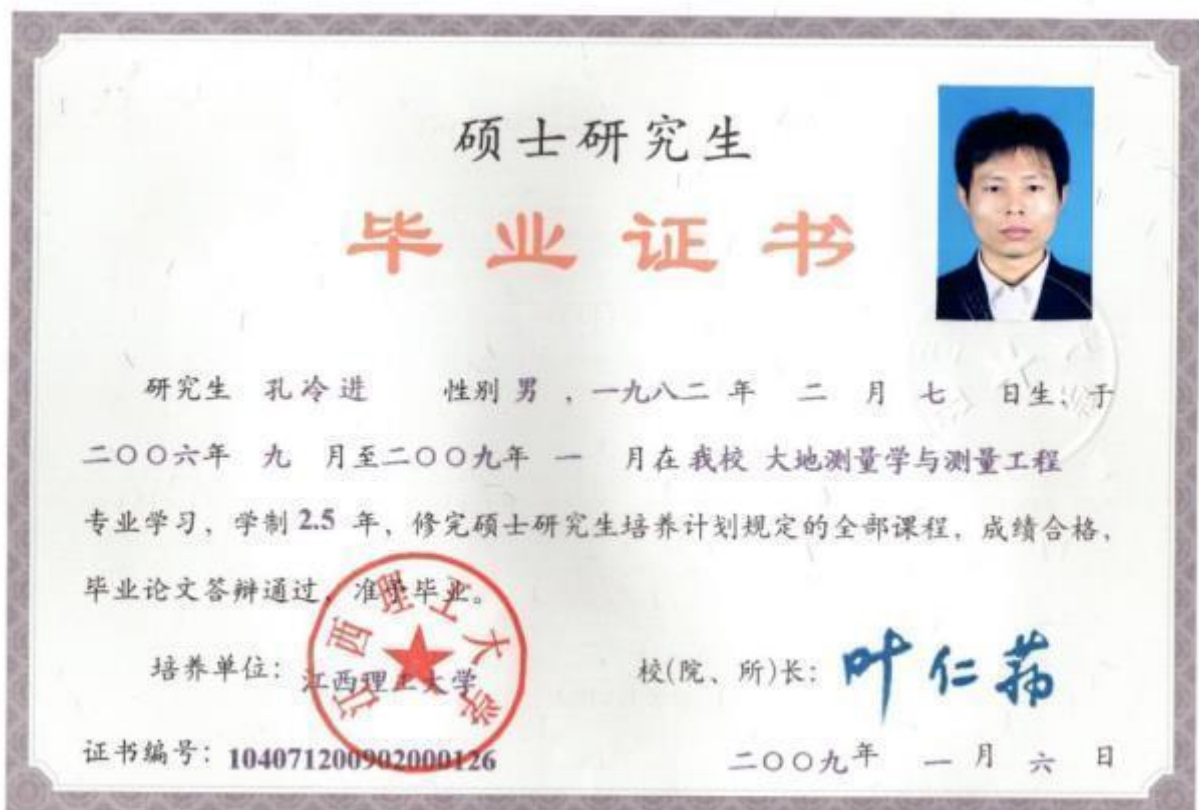 硕士研究生
毕业证书
研究生 孔冷进 性别 男 , 一九八二 年 二 月 七 日生, 于
二〇〇六年 九 月至二〇〇九年 一 月在 我校 大地测量学与测量工程
专业学习, 学制 2.5 年, 修完硕士研究生培养计划规定的全部课程, 成绩合格,
毕业论文答辩通过, 准予毕业。
江西理工大学
培养单位: 江西理工大学 校(院、所)长: 叶仁荪
证书编号: 104071200902000126 二〇〇九年 一 月 六 日